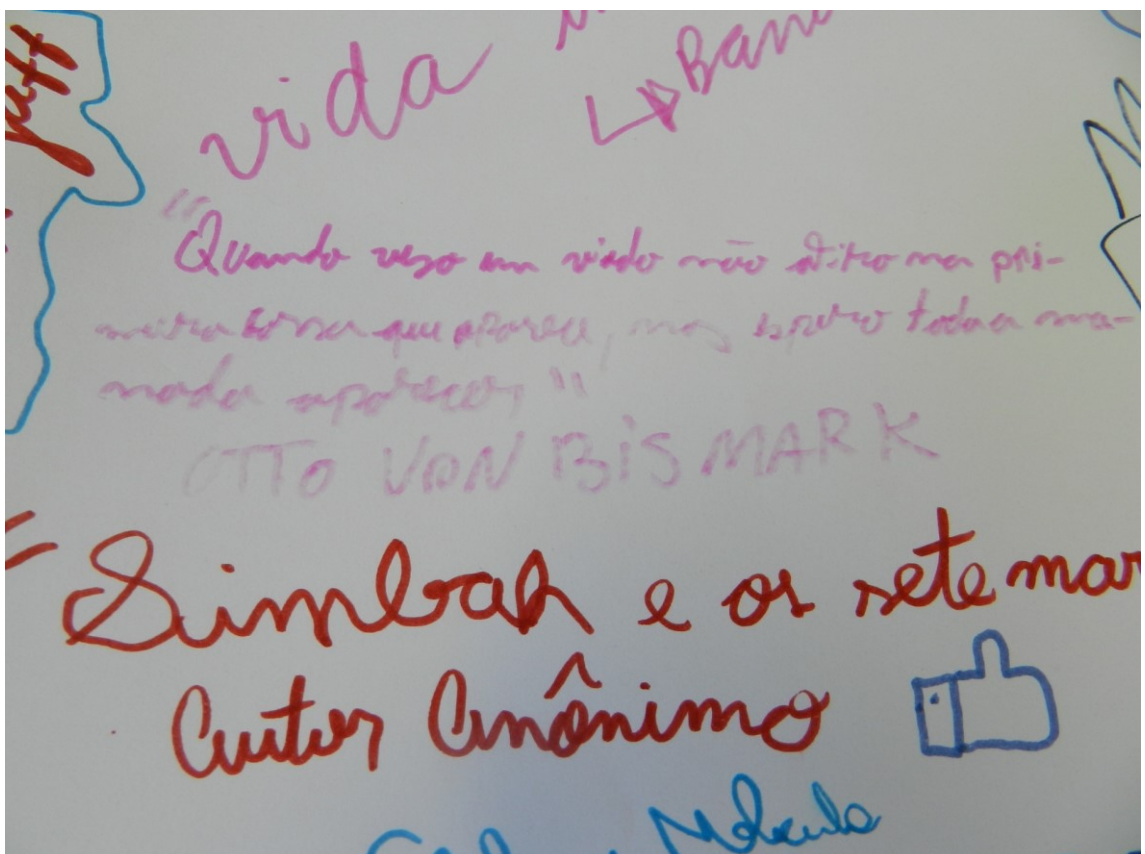 vida
Bam
"Quando vejo um viado não atiro na pri-
meira coisa que aparece, mas espero toda a ma-
nada aparecer"
OTTO VON BISMARK
Simbah e os sete mar
Autor Anônimo